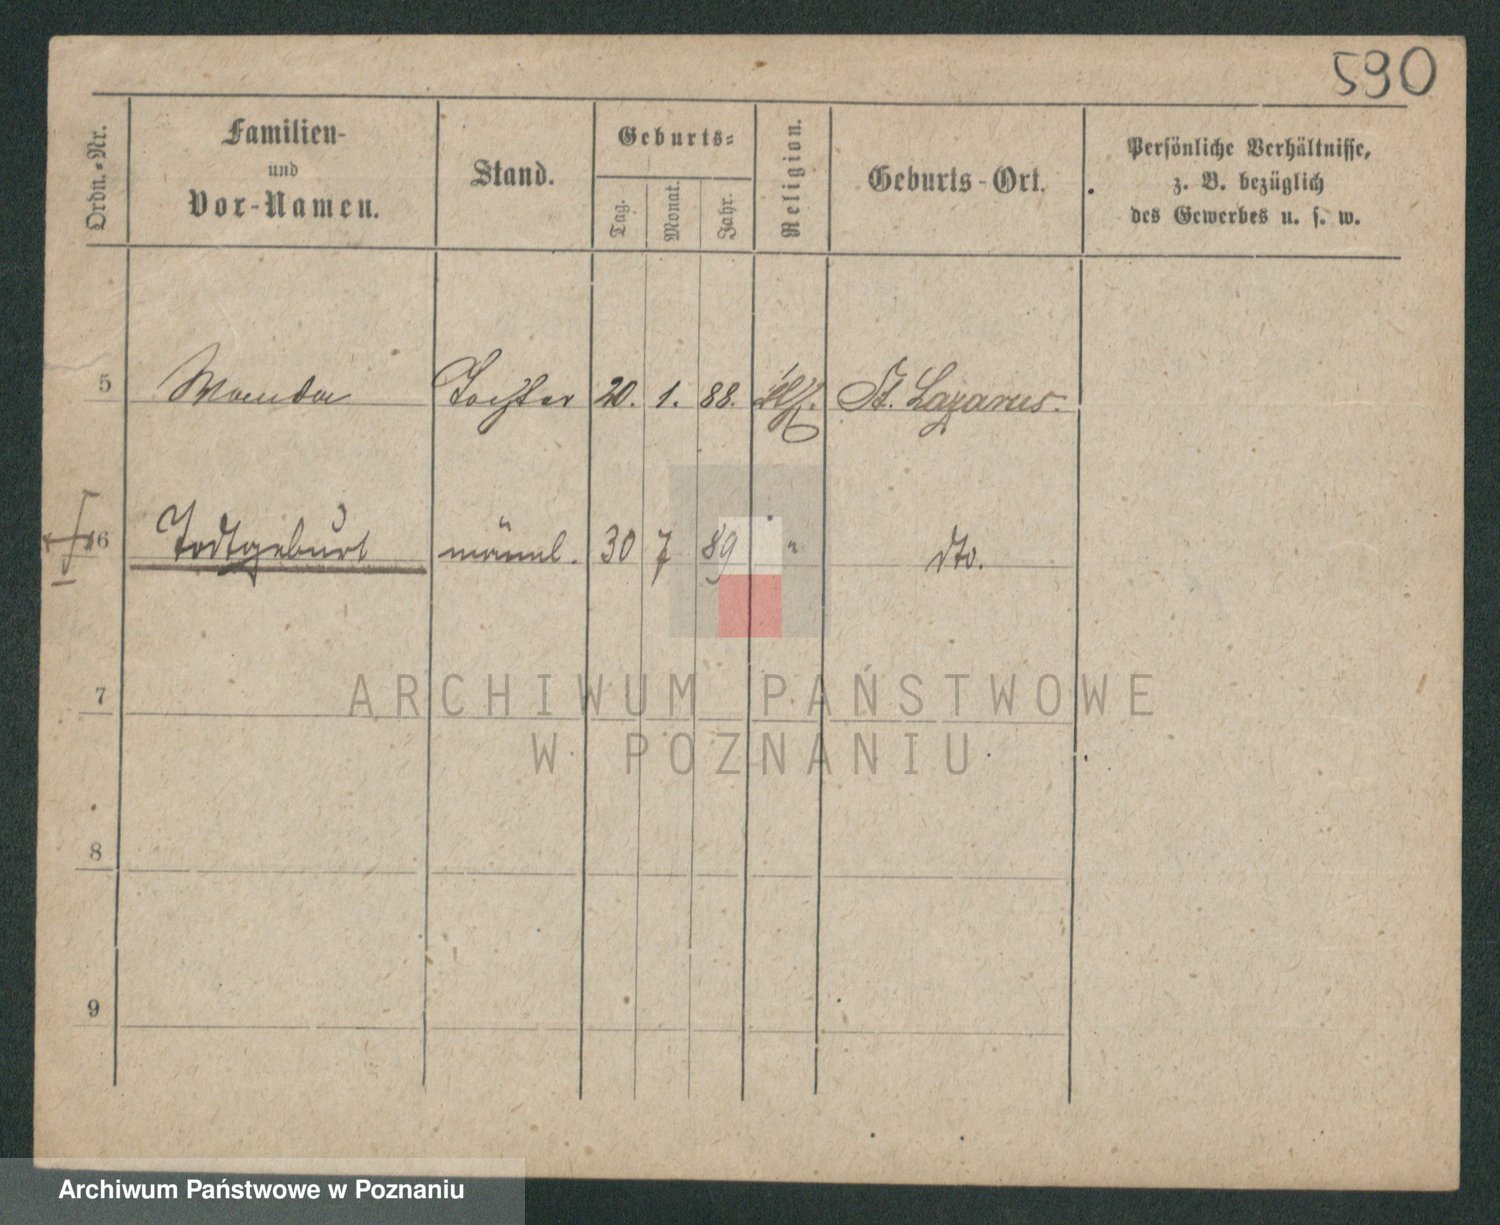 590
Ordn.-Nr.
Familien-
und
Vor-Namen.
Stand.
Geburts-
Tag.
Monat.
Jahr.
Religion.
Geburts-Ort.
Persönliche Verhältnisse,
z. B. bezüglich
des Gewerbes u. s. w.
5 Wanda Tochter 20. 1. 88. St. Lazarus.
6 Todtgeburt männl. 30 7 89 " dto.
7
ARCHIWUM PAŃSTWOWE
W POZNANIU
8
9
Archiwum Państwowe w Poznaniu